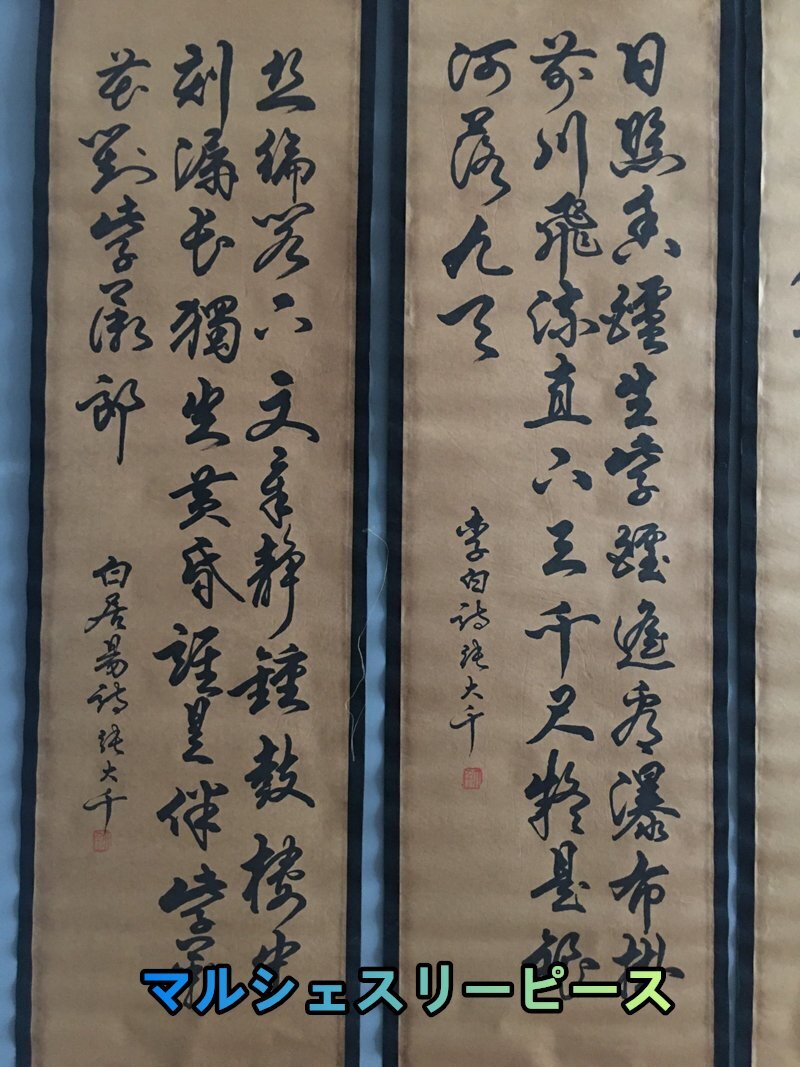 日照香爐生紫煙遙看瀑布掛
前川飛流直下三千尺疑是銀
河落九天
李白詩張大千
絲綸閣下文章靜鐘鼓樓中
刻漏長獨坐黃昏誰是伴紫薇
花對紫薇郎
白居易詩張大千
マルシェスリーピース